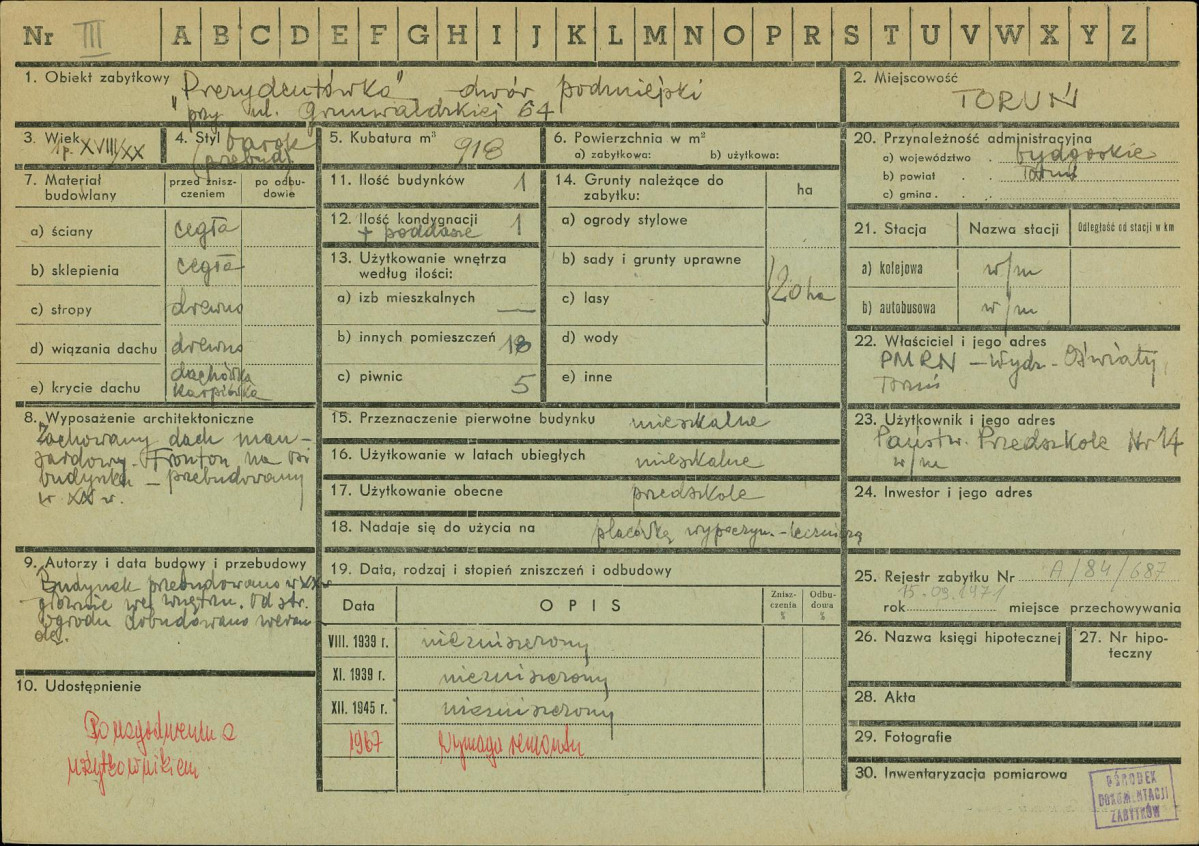 Nr III A B C D E F G H I J K L M N O P R S T U V W X Y Z
1. Obiekt zabytkowy "Prezydentówka" - dwór podmiejski
przy ul. Grunwaldzkiej 64
2. Miejscowość
TORUŃ
3. Wiek
1p. XVIII/XX
4. Styl barok
(przebud)
5. Kubatura m³ 918
6. Powierzchnia w m²
a) zabytkowa: b) użytkowa:
7. Materiał budowlany
przed zniszczeniem
po odbudowie
a) ściany cegła
b) sklepienia cegła
c) stropy drewno
d) wiązania dachu drewno
e) krycie dachu dachówka
karpiówka
8. Wyposażenie architektoniczne
Zachowany dach man-
sardowy. Fronton na osi
budynku - przebudowany
w XX w.
9. Autorzy i data budowy i przebudowy
Budynek przebudowano w XX w
głównie we wnętrzu. Od str.
ogrodu dobudowano weran
dę.
10. Udostępnienie
Po uzgodnieniu z
użytkownikiem
11. Ilość budynków 1
12. Ilość kondygnacji
+ poddasze 1
13. Użytkowanie wnętrza
według ilości:
a) izb mieszkalnych —
b) innych pomieszczeń 18
c) piwnic 5
14. Grunty należące do
zabytku:
ha
a) ogrody stylowe
b) sady i grunty uprawne
c) lasy
20 ha
d) wody
e) inne
15. Przeznaczenie pierwotne budynku mieszkalne
16. Użytkowanie w latach ubiegłych mieszkalne
17. Użytkowanie obecne przedszkole
18. Nadaje się do użycia na placówkę wypoczyn.-leczniczą
19. Data, rodzaj i stopień zniszczeń i odbudowy
Data OPIS
Zniszczenia %
Odbudowa %
VIII. 1939 r. niezniszczony
XI. 1939 r. niezniszczony
XII. 1945 r. niezniszczony
1967 Wymaga remontu
20. Przynależność administracyjna
a) województwo bydgoskie
b) powiat Toruń
c) gmina
21. Stacja Nazwa stacji Odległość od stacji w km
a) kolejowa w/m
b) autobusowa w/m
22. Właściciel i jego adres
PMRN - Wydz. Oświaty,
Toruń
23. Użytkownik i jego adres
Państw. Przedszkole Nr 14
w/m
24. Inwestor i jego adres
25. Rejestr zabytku Nr A/84/687
15.09.1971
rok miejsce przechowywania
26. Nazwa księgi hipotecznej
27. Nr hipo-
teczny
28. Akta
29. Fotografie
30. Inwentaryzacja pomiarowa
OŚRODEK
DOKUMENTACJI
ZABYTKÓW